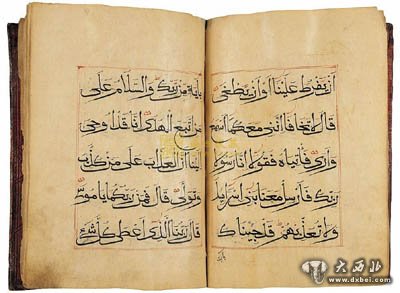 أن يفرط علينا أو أن يطغى
قال لا تخافا إنني معكما أسمع
وأرى فأتياه فقولا إنا رسولا
ربك فأرسل معنا بني إسرائيل
ولا تعذبهم قد جئناك
بآية من ربك والسلام على
من اتبع الهدى إنا قد أوحي
إلينا أن العذاب على من كذب
وتولى قال فمن ربكما يا موسى
قال ربنا الذي أعطى كل شيء
大西北
www.dxbei.com